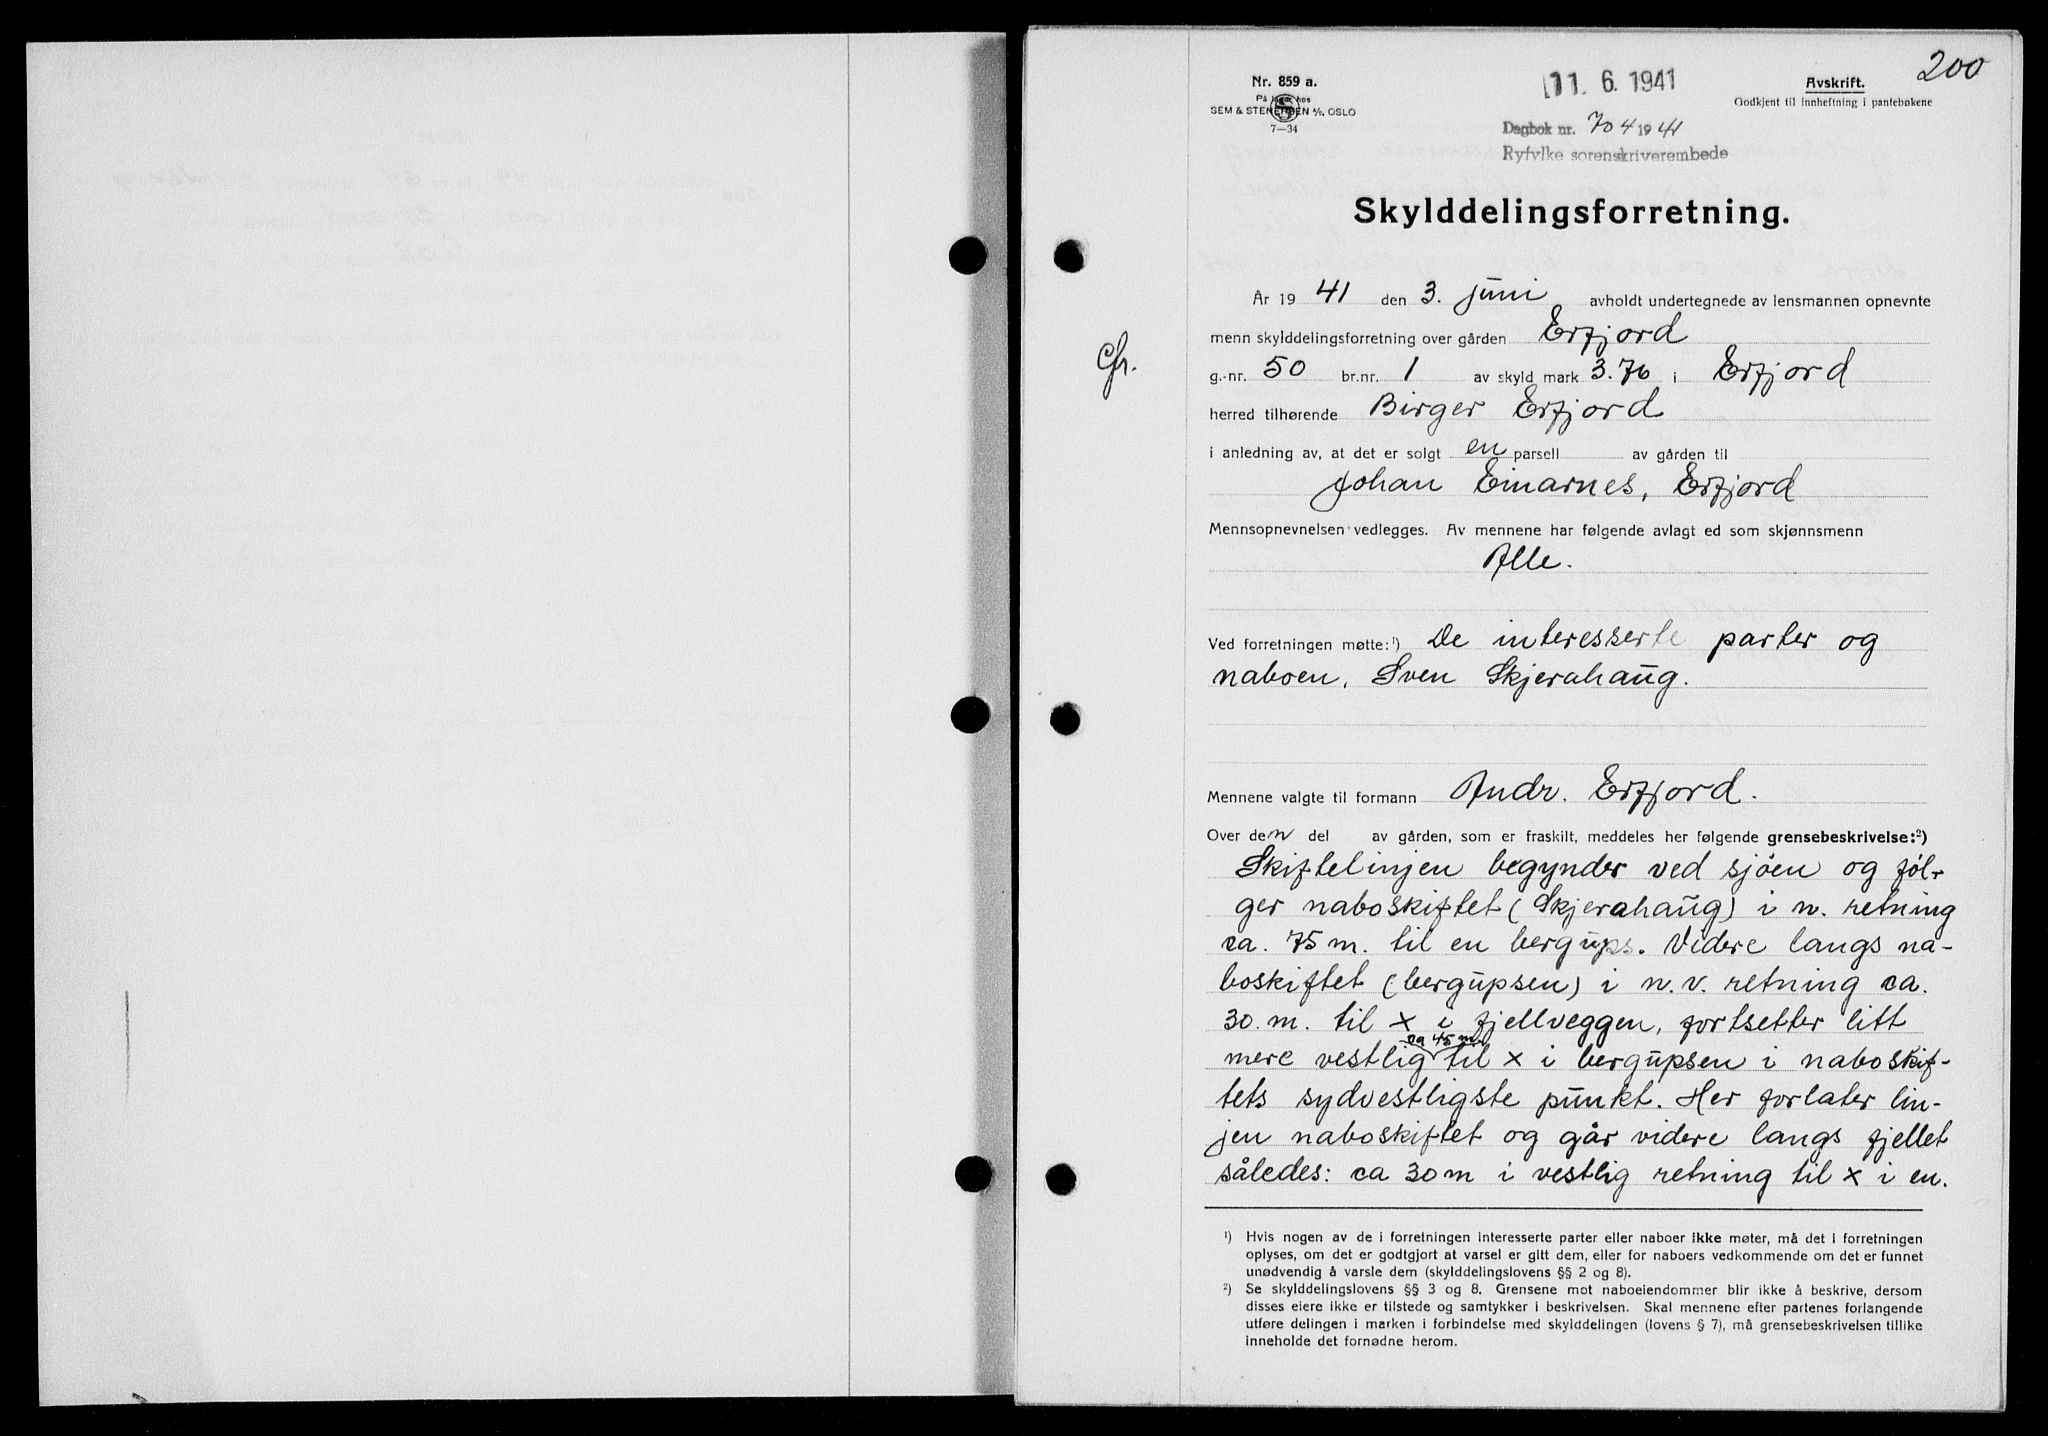 200
Nr. 859 a.
På lager hos
SEM & STENERSEN A/S, OSLO
7—34
11. 6. 1941
Dagbok nr. 704 1941
Ryfylke sorenskriverembede
Avskrift.
Godkjent til innheftning i pantebøkene
Skylddelingsforretning.
År 1941 den 3. juni avholdt undertegnede av lensmannen opnevnte
menn skylddelingsforretning over gården Erfjord
Gfr.
g.-nr. 50 br.nr. 1 av skyld mark 3.76 i Erfjord
herred tilhørende Birger Erfjord
i anledning av, at det er solgt en parsell av gården til
Johan Einarnes, Erfjord
Mennsopnevnelsen vedlegges. Av mennene har følgende avlagt ed som skjønnsmenn
Alle.
Ved forretningen møtte:¹) De interesserte parter og
naboen, Sven Skjerahaug.
Mennene valgte til formann Andr. Erfjord.
Over den del av gården, som er fraskilt, meddeles her følgende grensebeskrivelse:²)
Skiftelinjen begynder ved sjøen og føl-
ger naboskiftet (Skjerahaug) i n. retning
ca. 75 m. til en bergups. Videre langs na-
boskiftet (bergupsen) i n.v. retning ca.
30. m. til x i fjellveggen, fortsetter litt
mere vestlig ca 45 m. til x i bergupsen i naboskif-
tets sydvestligste punkt. Her forlater lin-
jen naboskiftet og går videre langs fjellet
således: ca 30 m i vestlig retning til x i en.
¹) Hvis nogen av de i forretningen interesserte parter eller naboer ikke møter, må det i forretningen
oplyses, om det er godtgjort at varsel er gitt dem, eller for naboers vedkommende om det er funnet
unødvendig å varsle dem (skylddelingslovens §§ 2 og 8).
²) Se skylddelingslovens §§ 3 og 8. Grensene mot naboeiendommer blir ikke å beskrive, dersom
disses eiere ikke er tilstede og samtykker i beskrivelsen. Skal mennene efter partenes forlangende
utføre delingen i marken i forbindelse med skylddelingen (lovens § 7), må grensebeskrivelsen tillike
inneholde det fornødne herom.